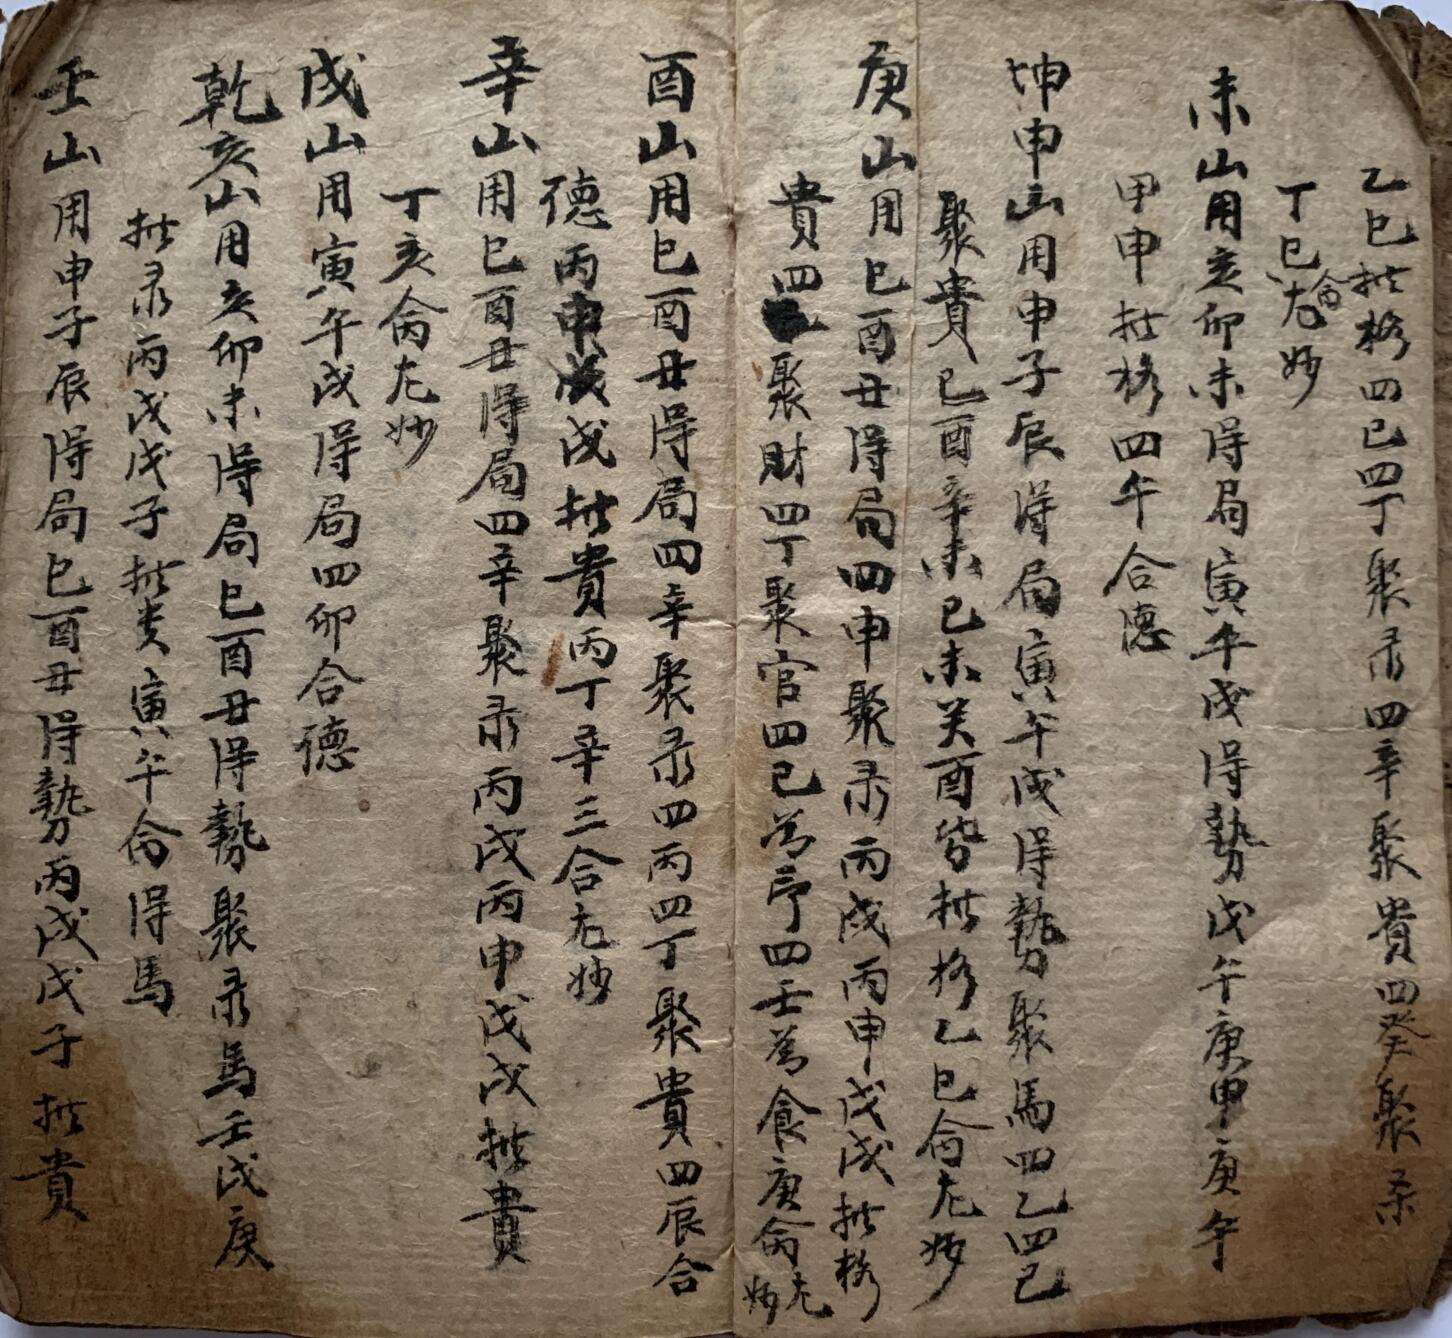 乙巳拱格四巳四丁聚彔四辛聚貴四癸聚彔
丁巳侖尤妙
未山用亥卯未得局寅午戌得勢戊午庚申庚午
甲申拱格四午合德
坤申山用申子辰得局寅午戌得勢聚馬四乙四己
聚貴己酉辛未己未关酉皆拱格乙巳侖尤妙
庚山用巳酉丑得局四申聚彔丙戌丙申戊戌拱格
貴四聚財四丁聚官四己為印四壬為食庚侖尤妙
酉山用巳酉丑得局四辛聚彔四丙四丁聚貴四辰合
德丙申戊戌拱貴丙丁辛三合尤妙
辛山用巳酉丑得局四辛聚彔丙戌丙申戊戌拱貴
丁亥侖尤妙
戌山用寅午戌得局四卯合德
乾亥山用亥卯未得局巳酉丑得勢聚彔馬壬戌庚
拱彔丙戌戊子拱贵寅午侖得馬
壬山用申子辰得局巳酉丑得勢丙戌戊子拱貴